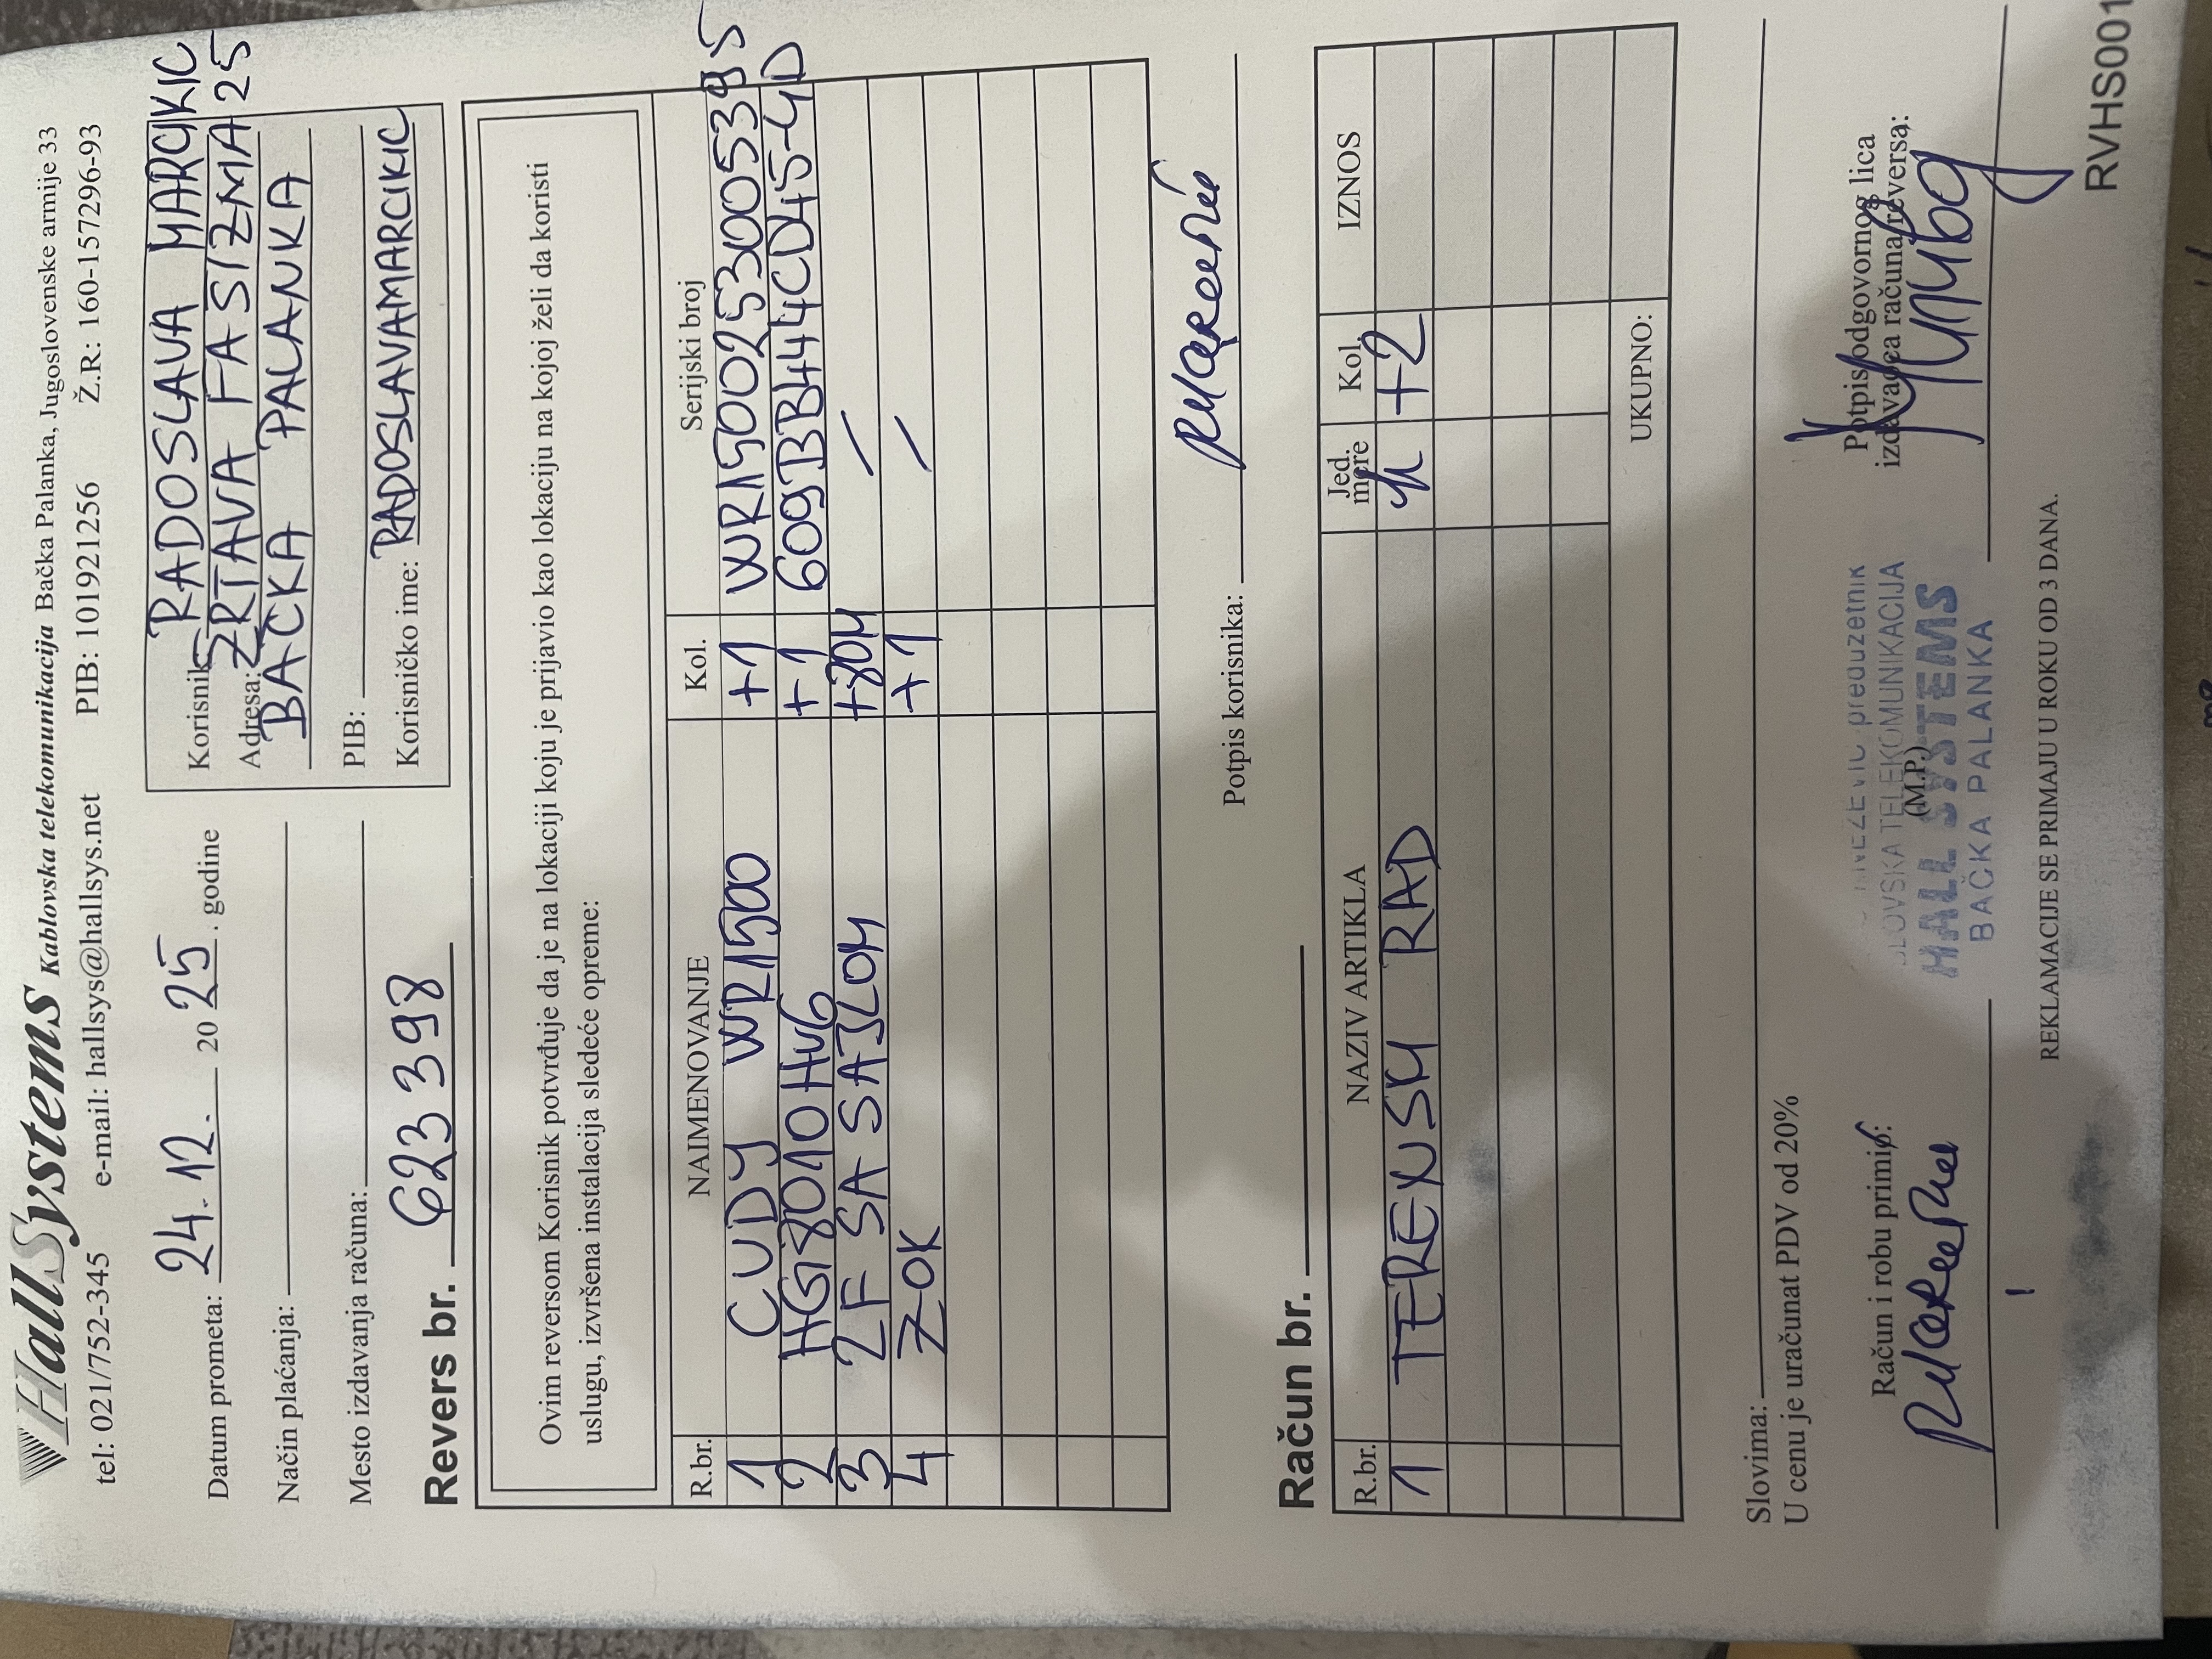 HallSystems Kablovska telekomunikacija Bačka Palanka, Jugoslovenske armije 33
tel: 021/752-345 e-mail: hallsys@hallsys.net PIB: 101921256 Ž.R: 160-157296-93
Datum prometa: 24.12. 2025. godine
Način plaćanja:
Mesto izdavanja računa:
Korisnik: RADOSLAVA MARCIKIC
Adresa: ZRTAVA FASIZMA 25
BACKA PALANKA
PIB:
Korisničko ime: RADOSLAVAMARCIKIC
Revers br. 623398
Ovim reversom Korisnik potvrđuje da je na lokaciji koju je prijavio kao lokaciju na kojoj želi da koristi
uslugu, izvršena instalacija sledeće opreme:
R.br. NAIMENOVANJE Kol. Serijski broj
1 CUDY WR1500 +1 WR1500253005395
2 HG8010Hv6 +1 609BB444CD45-4D
3 2F SA SAJLOM +80M /
4 ZOK +1 /
Potpis korisnika:
Račun br.
R.br. NAZIV ARTIKLA Jed. mere Kol. IZNOS
1 TERENSKI RAD h +2
UKUPNO:
Slovima:
U cenu je uračunat PDV od 20%
Račun i robu primio:
(M.P.)
preduzetnik
TELEKOMUNIKACIJA
HALL SYSTEMS
BAČKA PALANKA
Potpis odgovornog lica
izdavaoca računa/reversa:
REKLAMACIJE SE PRIMAJU U ROKU OD 3 DANA.
RVHS001